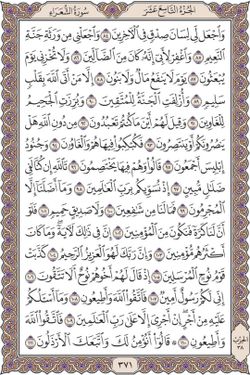 سُورَةُ الشُّعَرَاءِ الجُزْءُ التَّاسِعَ عَشَرَ
وَاجْعَل لِّي لِسَانَ صِدْقٍ فِي الْآخِرِينَ ٨٤ وَاجْعَلْنِي مِن وَرَثَةِ جَنَّةِ
النَّعِيمِ ٨٥ وَاغْفِرْ لِأَبِي إِنَّهُ كَانَ مِنَ الضَّالِّينَ ٨٦ وَلَا تُخْزِنِي يَوْمَ
يُبْعَثُونَ ٨٧ يَوْمَ لَا يَنفَعُ مَالٌ وَلَا بَنُونَ ٨٨ إِلَّا مَنْ أَتَى اللَّهَ بِقَلْبٍ
سَلِيمٍ ٨٩ وَأُزْلِفَتِ الْجَنَّةُ لِلْمُتَّقِينَ ٩٠ وَبُرِّزَتِ الْجَحِيمُ
لِلْغَاوِينَ ٩١ وَقِيلَ لَهُمْ أَيْنَ مَا كُنتُمْ تَعْبُدُونَ ٩٢ مِن دُونِ اللَّهِ هَلْ
يَنصُرُونَكُمْ أَوْ يَنتَصِرُونَ ٩٣ فَكُبْكِبُوا فِيهَا هُمْ وَالْغَاوُونَ ٩٤ وَجُنُودُ
إِبْلِيسَ أَجْمَعُونَ ٩٥ قَالُوا وَهُمْ فِيهَا يَخْتَصِمُونَ ٩٦ تَاللَّهِ إِن كُنَّا لَفِي
ضَلَالٍ مُّبِينٍ ٩٧ إِذْ نُسَوِّيكُم بِرَبِّ الْعَالَمِينَ ٩٨ وَمَا أَضَلَّنَا إِلَّا
الْمُجْرِمُونَ ٩٩ فَمَا لَنَا مِن شَافِعِينَ ١٠٠ وَلَا صَدِيقٍ حَمِيمٍ ١٠١ فَلَوْ
أَنَّ لَنَا كَرَّةً فَنَكُونَ مِنَ الْمُؤْمِنِينَ ١٠٢ إِنَّ فِي ذَٰلِكَ لَآيَةً وَمَا كَانَ
أَكْثَرُهُم مُّؤْمِنِينَ ١٠٣ وَإِنَّ رَبَّكَ لَهُوَ الْعَزِيزُ الرَّحِيمُ ١٠٤ كَذَّبَتْ
قَوْمُ نُوحٍ الْمُرْسَلِينَ ١٠٥ إِذْ قَالَ لَهُمْ أَخُوهُمْ نُوحٌ أَلَا تَتَّقُونَ ١٠٦
إِنِّي لَكُمْ رَسُولٌ أَمِينٌ ١٠٧ فَاتَّقُوا اللَّهَ وَأَطِيعُونِ ١٠٨ وَمَا أَسْأَلُكُمْ
عَلَيْهِ مِنْ أَجْرٍ إِنْ أَجْرِيَ إِلَّا عَلَىٰ رَبِّ الْعَالَمِينَ ١٠٩ فَاتَّقُوا اللَّهَ
وَأَطِيعُونِ ١١٠ قَالُوا أَنُؤْمِنُ لَكَ وَاتَّبَعَكَ الْأَرْذَلُونَ ١١١
الحِزْب
٣٨
٣٧١